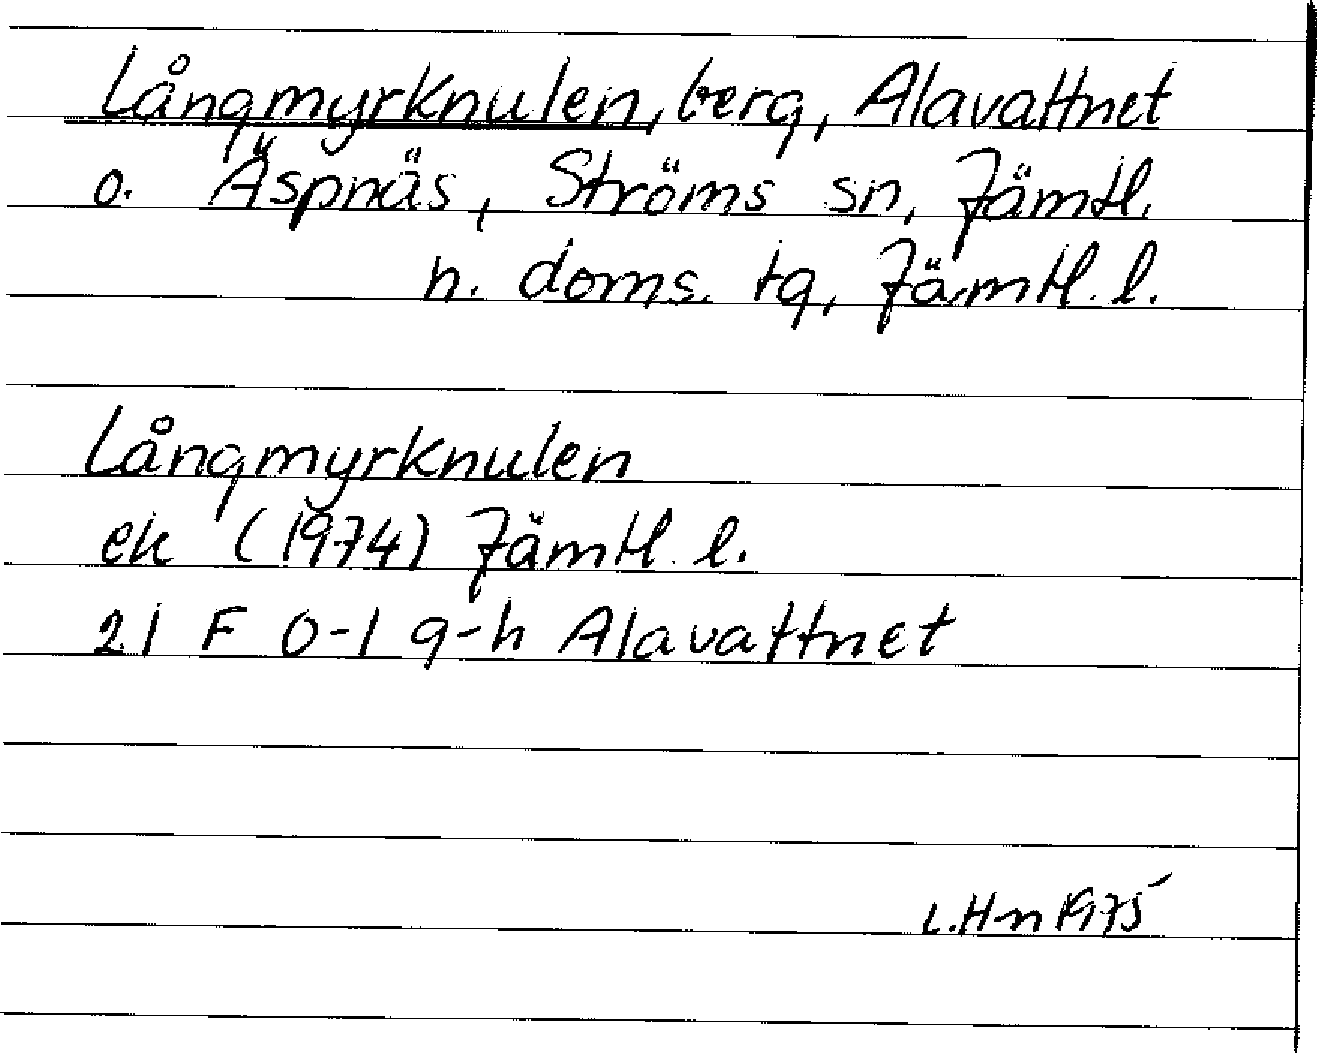 Långmyrknulen, berg, Alavattnet
o. Äspnäs, Ströms sn, Jämtl.
n. doms. tg, Jämtl. l.
Långmyrknulen
ek (1974) Jämtl. l.
21 F 0-1 g-h Alavattnet
L.H-n 1975